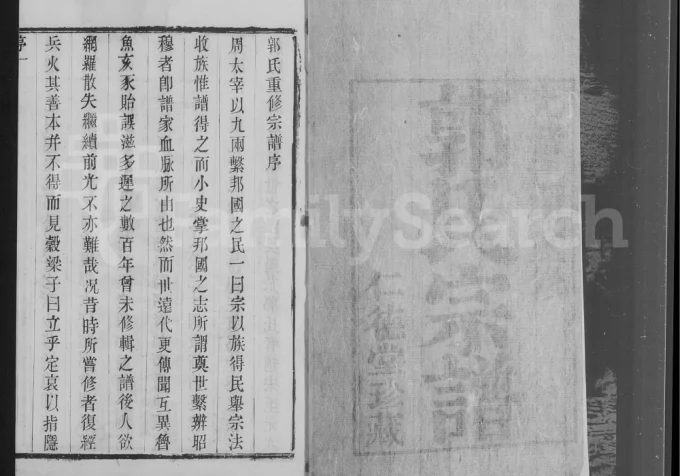 郭氏宗譜
仁德堂珍藏
郭氏重修宗譜序
周太宰以九兩繫邦國之民一曰宗以族得民舉宗法
收族惟譜得之而小史掌邦國之志所謂奠世繫辨昭
穆者卽譜家血脈所由也然而世遠代更傳聞互異魯
魚亥豕貽誤滋多遲之數百年曾未修輯之譜後人欲
網羅散失繼續前光不亦難哉况昔時所嘗修者復經
兵火其善本并不得而見穀梁子曰立乎定哀以指隱
序一
FamilySearch